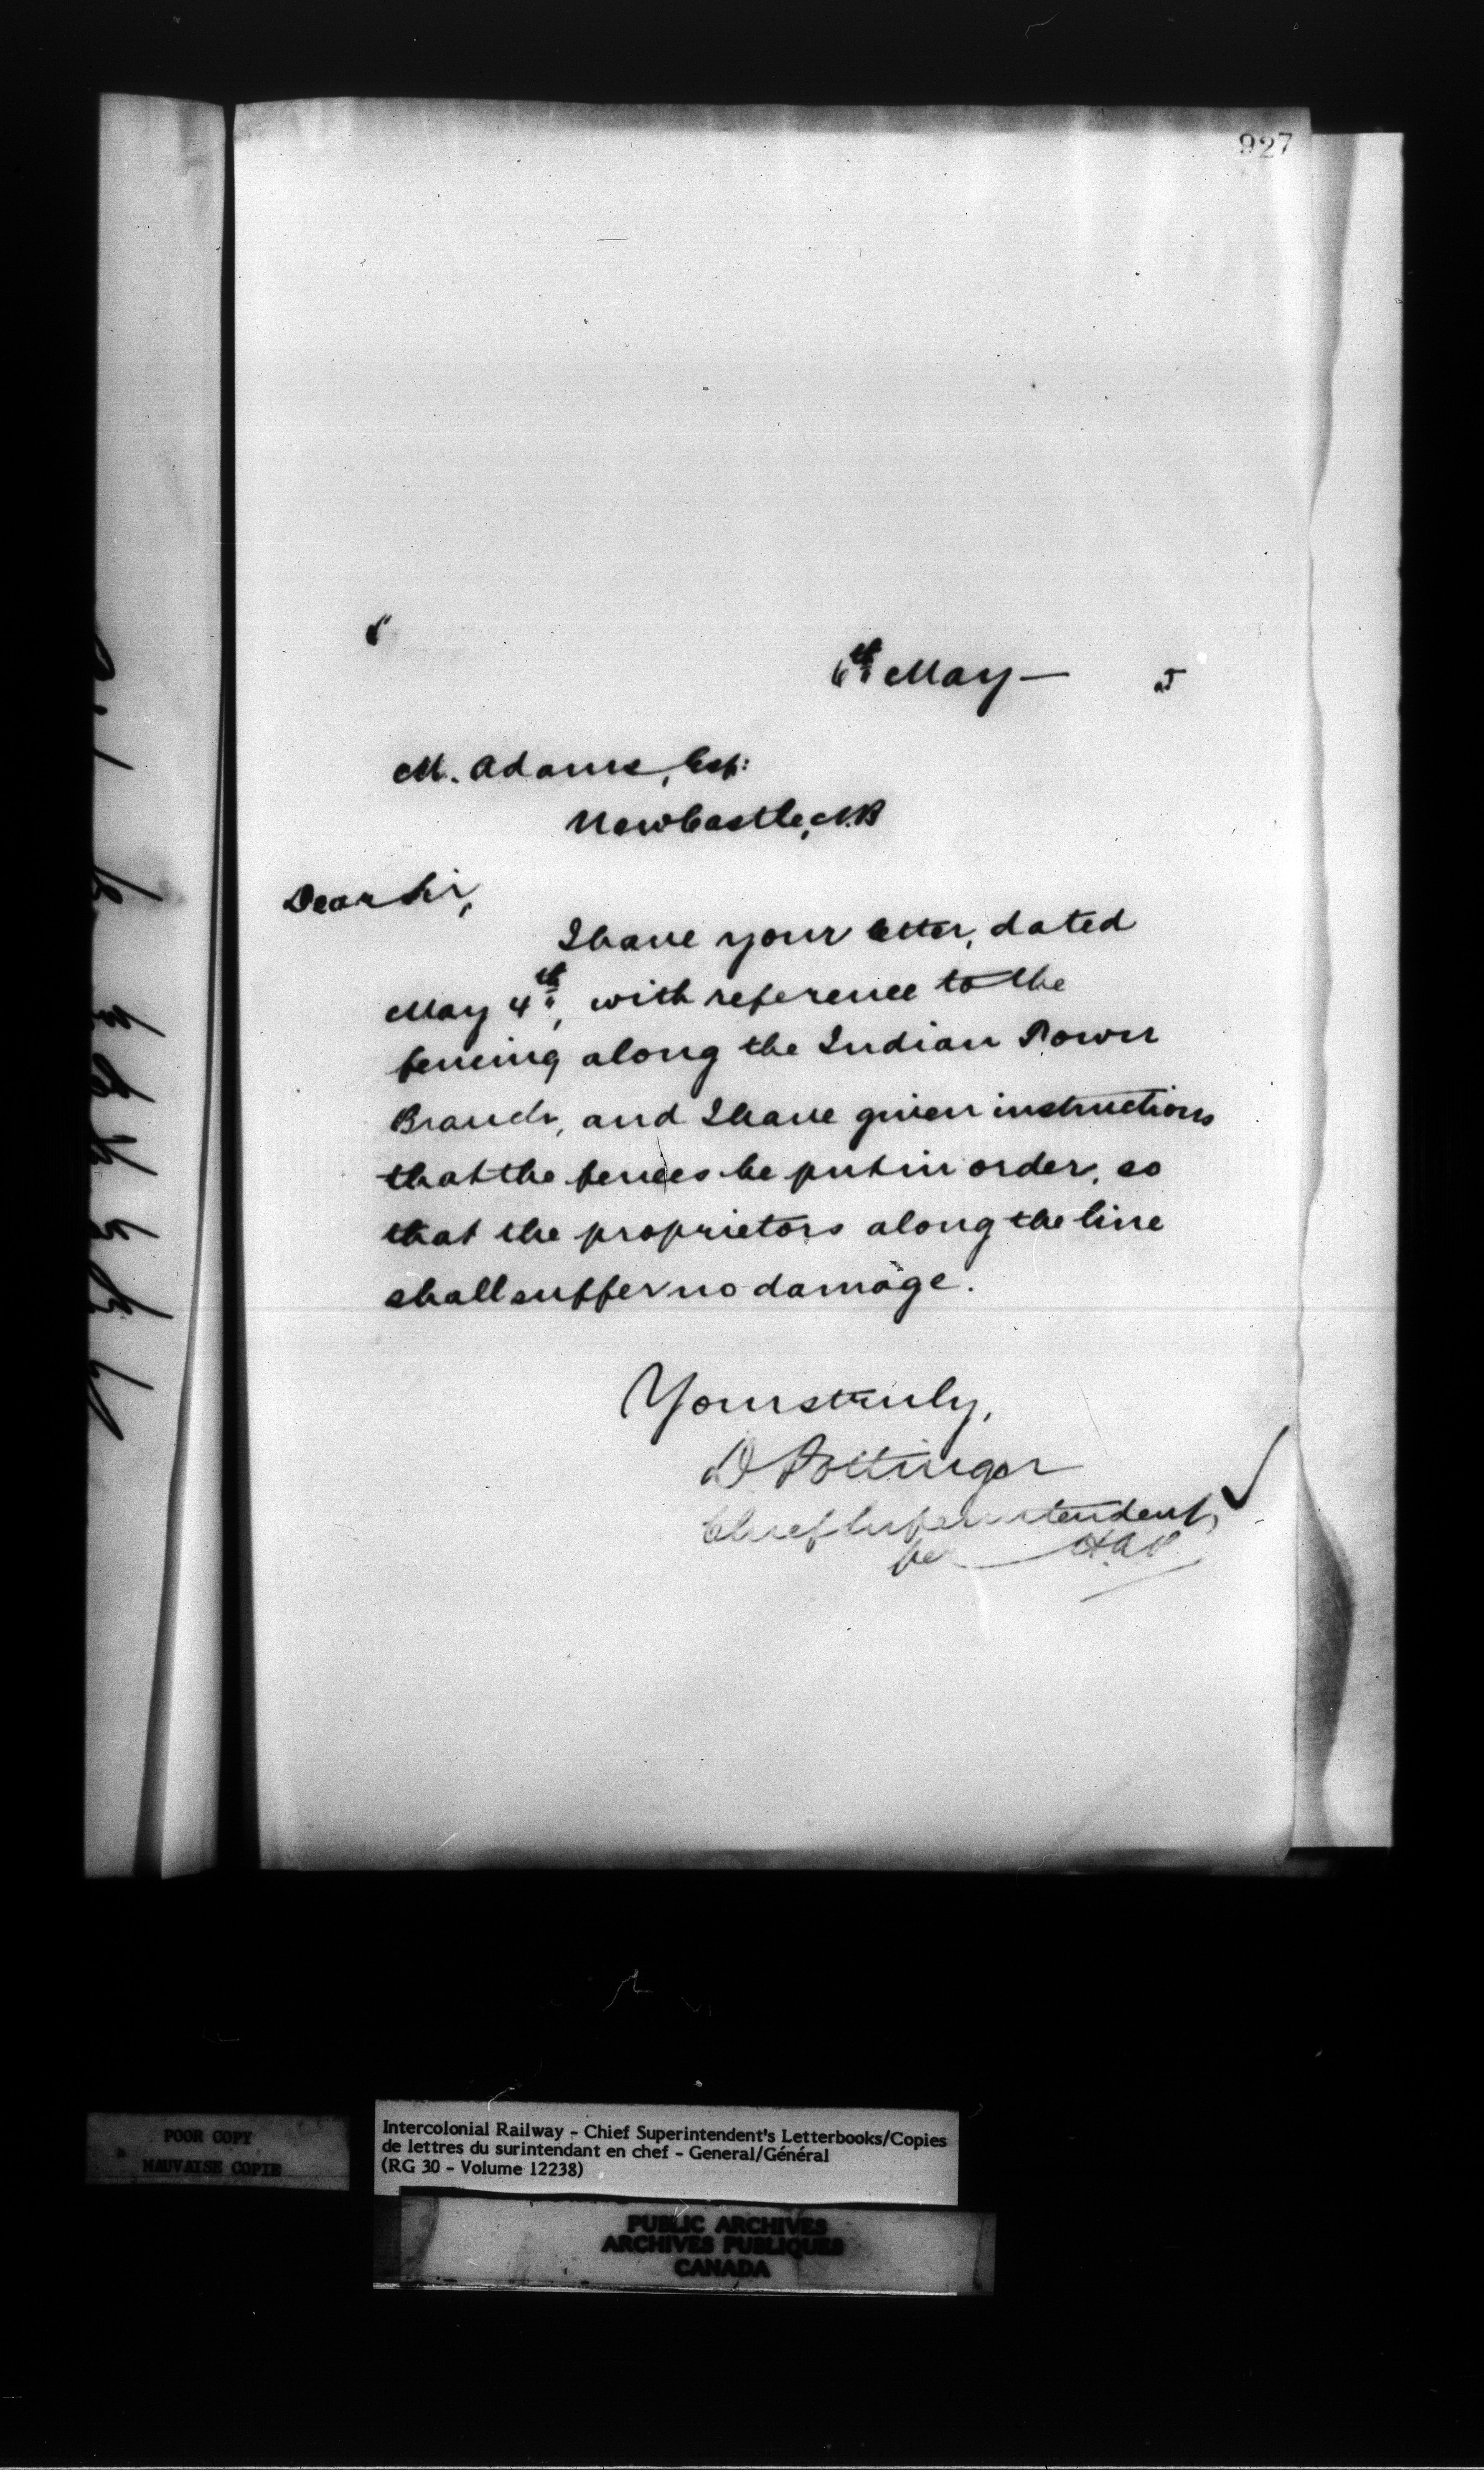 927
6th May — 5
M. Adams, Esq:
NewCastle, N.B
Dear Sir,
I have your letter, dated
May 4th, with reference to the
fencing along the Indian Town
Branch, and I have given instructions
that the fences be put in order, so
that the proprietors along the line
shall suffer no damage.
Yours truly,
D Pottinger
Chief Superintendent,
per
POOR COPY
MAUVAISE COPIE
Intercolonial Railway - Chief Superintendent's Letterbooks/Copies
de lettres du surintendant en chef - General/Général
(RG 30 - Volume 12238)
PUBLIC ARCHIVES
ARCHIVES PUBLIQUES
CANADA